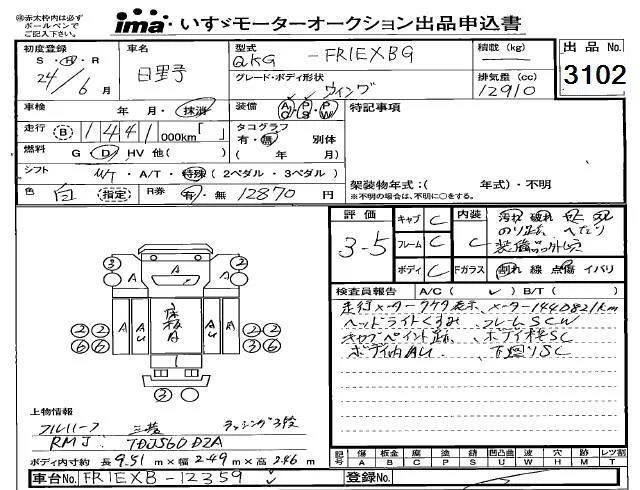 ㊟赤太枠内は必ず
ボールペンで
ご記入下さい。
ima いすゞモーターオークション出品申込書
初度登録 車名 型式 積載(kg) 出品No.
S・H・R 日野 QKG -FR1EXBG 3102
24/6月 グレード・ボディ形状 ウイング 排気量(cc) 12910
車検 年 月・抹消 装備 AC・PS・PW 特記事項
走行 B 1441 000km「 」 タコグラフ 有・無 別体
燃料 G・D・HV 他( ) ( 年 月)
シフト M/T・A/T・特殊(2ペダル・3ペダル) 架装物年式:( 年式)・不明
色 白 (指定) R券 有・無 12870円 ※不明の場合は、不明に○をする。
評価 3-5 キャブ C 内装 C 汚れ 破れ
フレーム C のり跡 へたり
装備品外し穴
ボディ C Fガラス 割れ 線 点傷 イバリ
検査員報告 A/C( ✓ ) B/T( )
走行メーターケタ表示、メーター1440821km
ヘッドライトくすみ フレームSCW
キャブペイント跡、ボディ様SC
ボディ内AU 下廻りSC
3 A 2
A A A 床板A A AU A
2 2 2 2
6 6 6 6
1 1
3
上物情報
フルハーフ 三菱 ラッシング3段
RMJ TDJS60D2A
ボディ内寸約 長 9.51 m×幅 2.49 m×高 2.46 m
記号 傷 板金 腐 塗 錆 凹凸曲 波 穴 跡 レツ割
A B C P S U W H M T
車台No. FR1EXB-12359 ✓ 登録No.